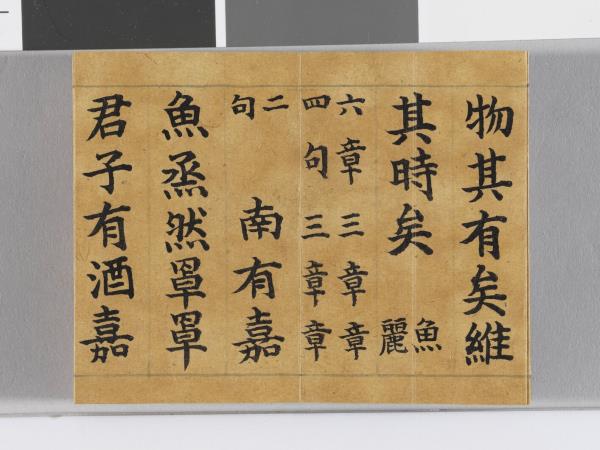 物其有矣維
其時矣 魚麗
六章三章章
四句三章章
二句 南有嘉
魚烝然罩罩
君子有酒嘉